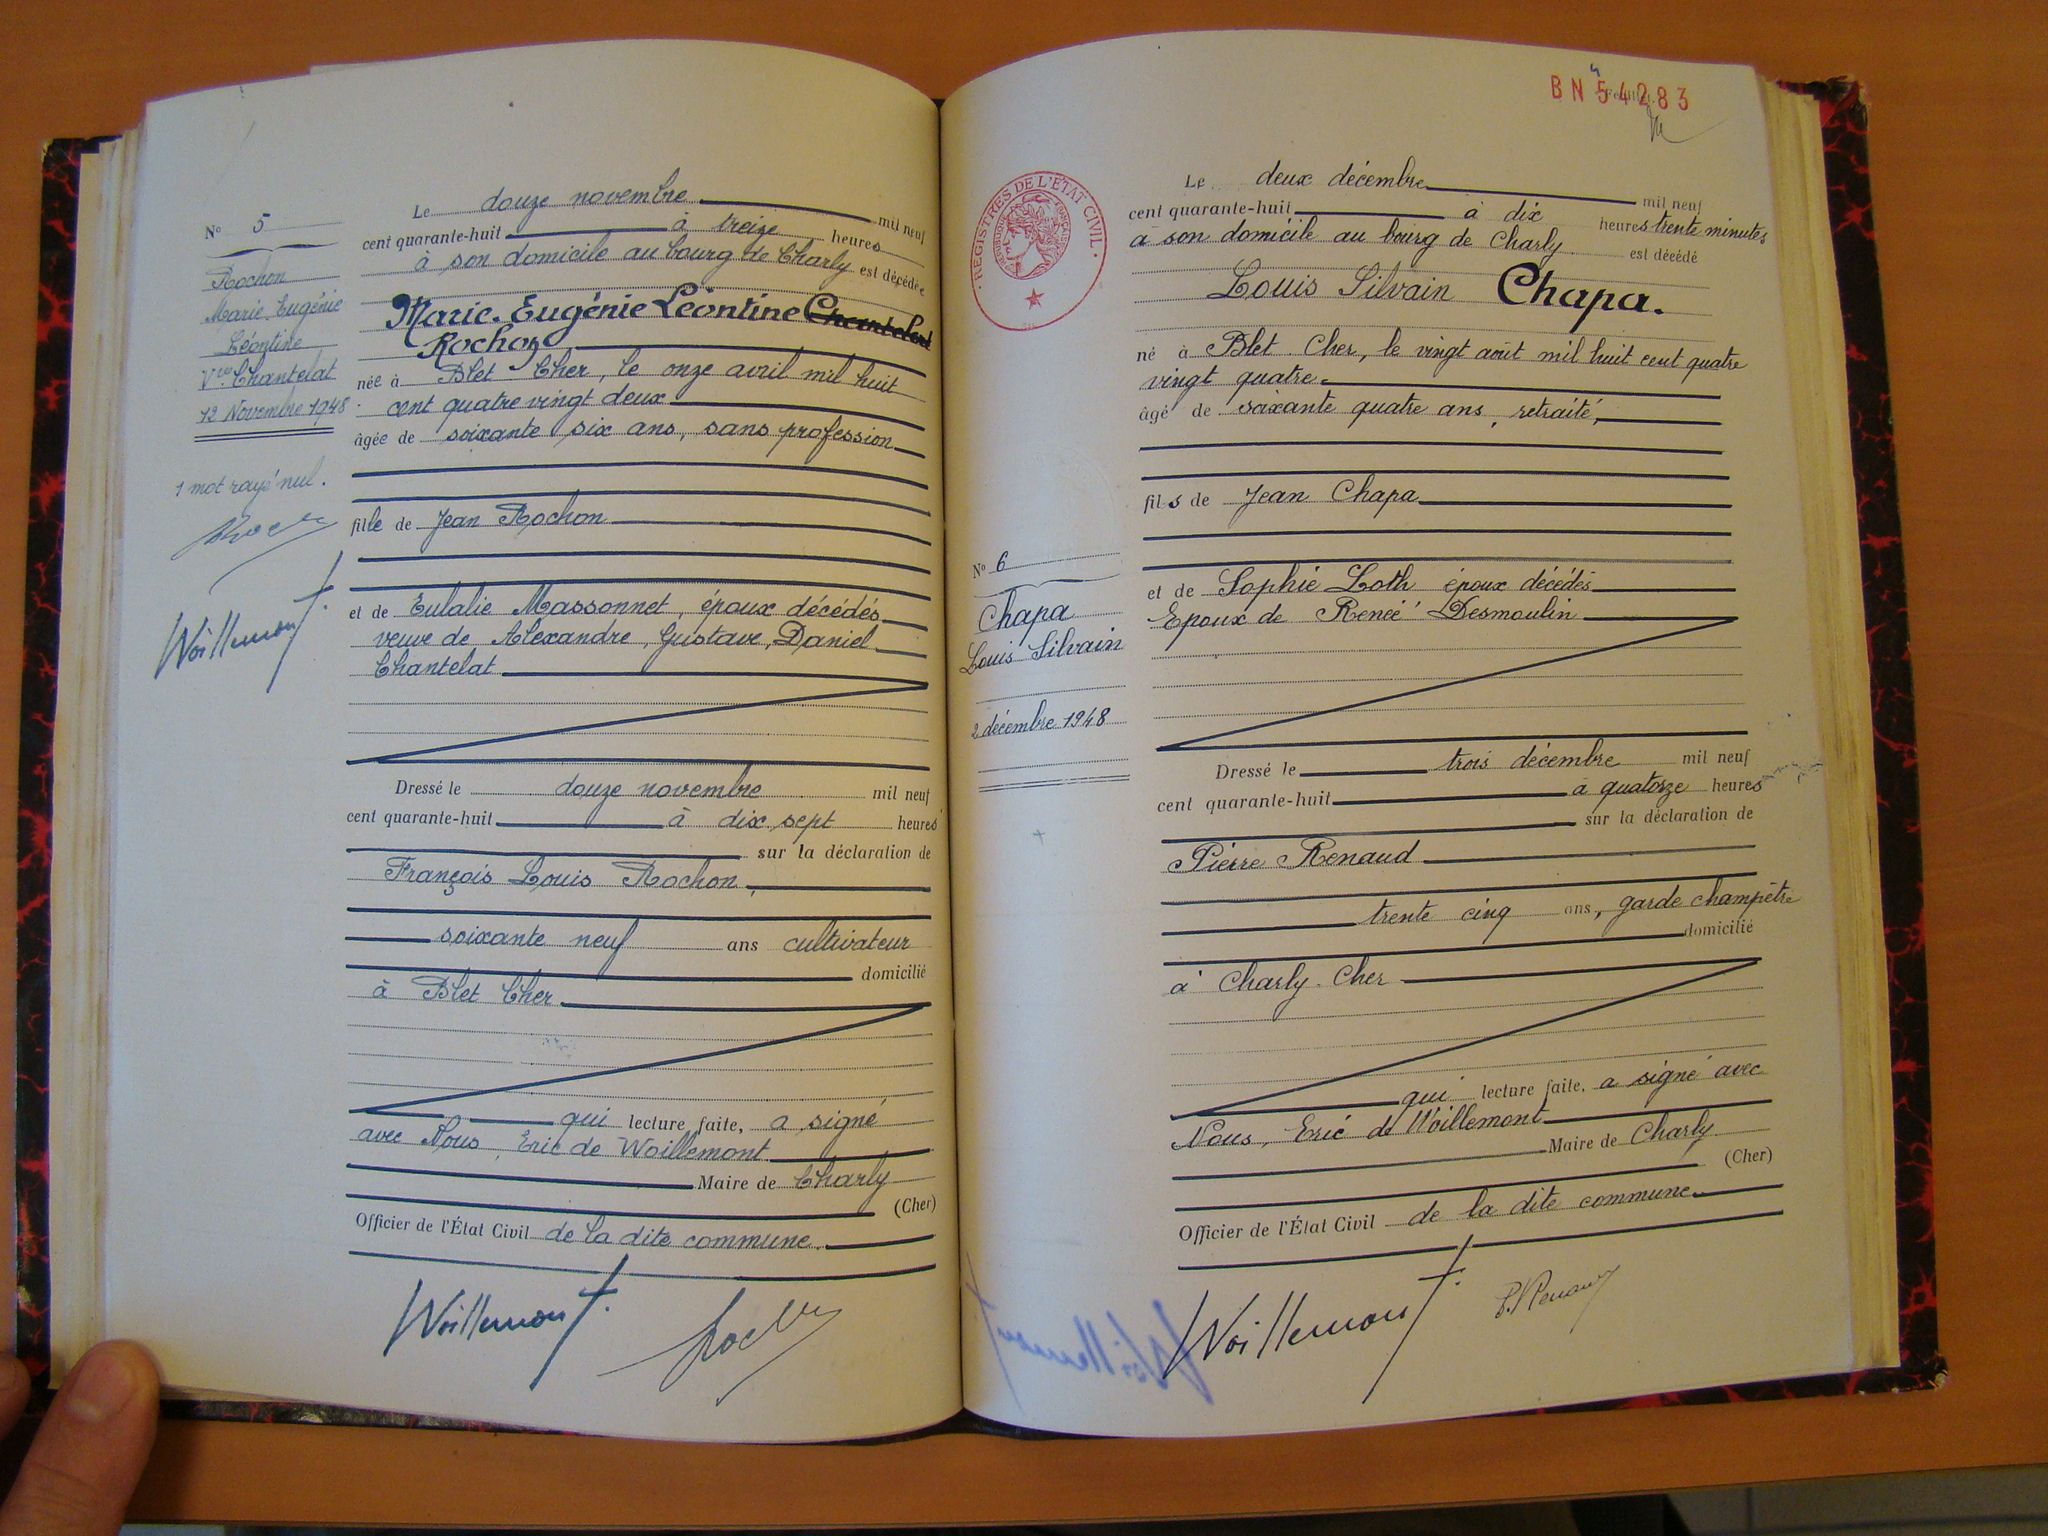 N° 5
Rochon
Marie Eugénie
Léontine
Vve Chantelat
12 Novembre 1948
1 mot rayé nul.
Woillemont
Le douze novembre mil neuf
cent quarante-huit à treize heures
à son domicile au bourg de Charly est décédée
Marie-Eugénie Léontine Chantelat
Rochon
née à Blet Cher, le onze avril mil huit
cent quatre vingt deux
âgée de soixante six ans, sans profession
fille de Jean Rochon
et de Eulalie Massonnet, époux décédés
veuve de Alexandre, Gustave, Daniel
Chantelat
Dressé le douze novembre mil neuf
cent quarante-huit à dix sept heures
sur la déclaration de
François Louis Rochon,
soixante neuf ans cultivateur
domicilié
à Blet Cher
qui lecture faite, a signé
avec Nous, Eric de Woillemont
Maire de Charly
(Cher)
Officier de l'État Civil de la dite commune.
Woillemont
BN 54283
REGISTRES DE L'ETAT CIVIL
N° 6
Chapa
Louis Silvain
2 décembre 1948
Le deux décembre mil neuf
cent quarante-huit à dix heures trente minutes
à son domicile au bourg de Charly est décédé
Louis Silvain Chapa.
né à Blet Cher, le vingt août mil huit cent quatre
vingt quatre
âgé de soixante quatre ans, retraité,
fils de Jean Chapa
et de Sophie Loth époux décédés
Epoux de Renée Desmoulin
Dressé le trois décembre mil neuf
cent quarante-huit à quatorze heures
sur la déclaration de
Pierre Renaud
trente cinq ans, garde champêtre
domicilié
à Charly-Cher
qui lecture faite, a signé avec
Nous, Eric de Woillemont
Maire de Charly
(Cher)
Officier de l'État Civil de la dite commune
Woillemont P. Renaud